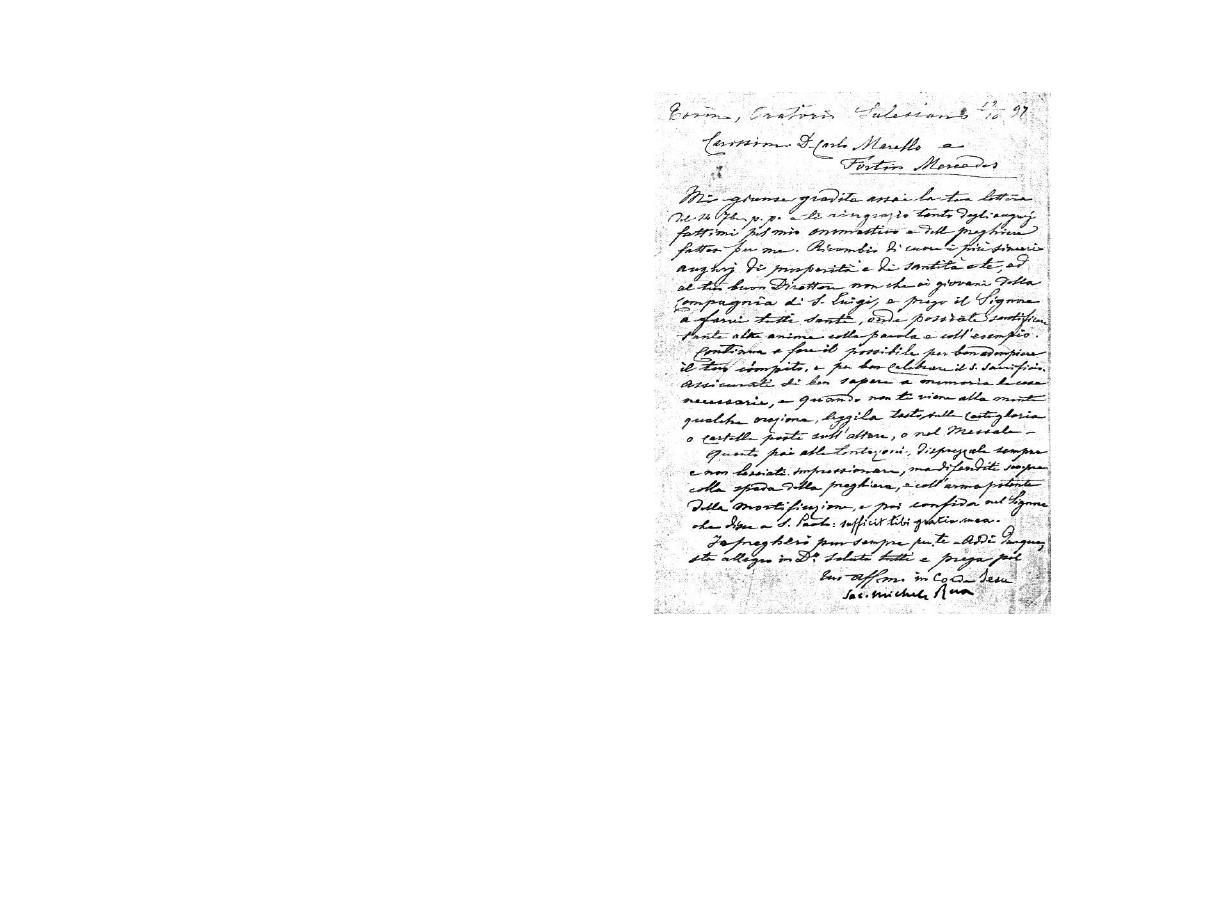 Torino, Oratorio Salesiano 19/10 97
Carissimo D. Carlo Marello a
Fortin Mercedes
Mi giunse gradita assai la tua lettera
del 14 7bre p. p. e ti ringrazio tanto degli augurj
fattimi pel mio onomastico e delle preghiere
fatte per me. Ricambio di cuore i più sinceri
augurj di prosperità e di santità a te, ed
al tuo buon Direttore non che ai giovani della
Compagnia di S. Luigi, e prego il Signore
a farvi tutti santi, onde possiate santificare
tante altre anime colla parola e coll'esempio.
Continua a fare il possibile per ben adempiere
il tuo cómpito, e per ben celebrare il S. Sacrificio.
Assicurati di ben sapere a memoria le cose
necessarie, e quando non ti viene alla mente
qualche orazione, leggila tosto sulle Cartagloria
o cartelle poste sull'altare, o nel Messale –
Quanto poi alle tentazioni, disprezzale sempre
e non lasciati impressionare, ma difenditi sempre
colla spada della preghiera, e coll'arma potente
della mortificazione, e poi confida nel Signore
che disse a S. Paolo: sufficit tibi gratia mea.
Io pregherò pur sempre per te – Addì
sta allegro in D.o saluta tutti e prega pel
tuo affmo in Corde Jesu
Sac. Michele Rua